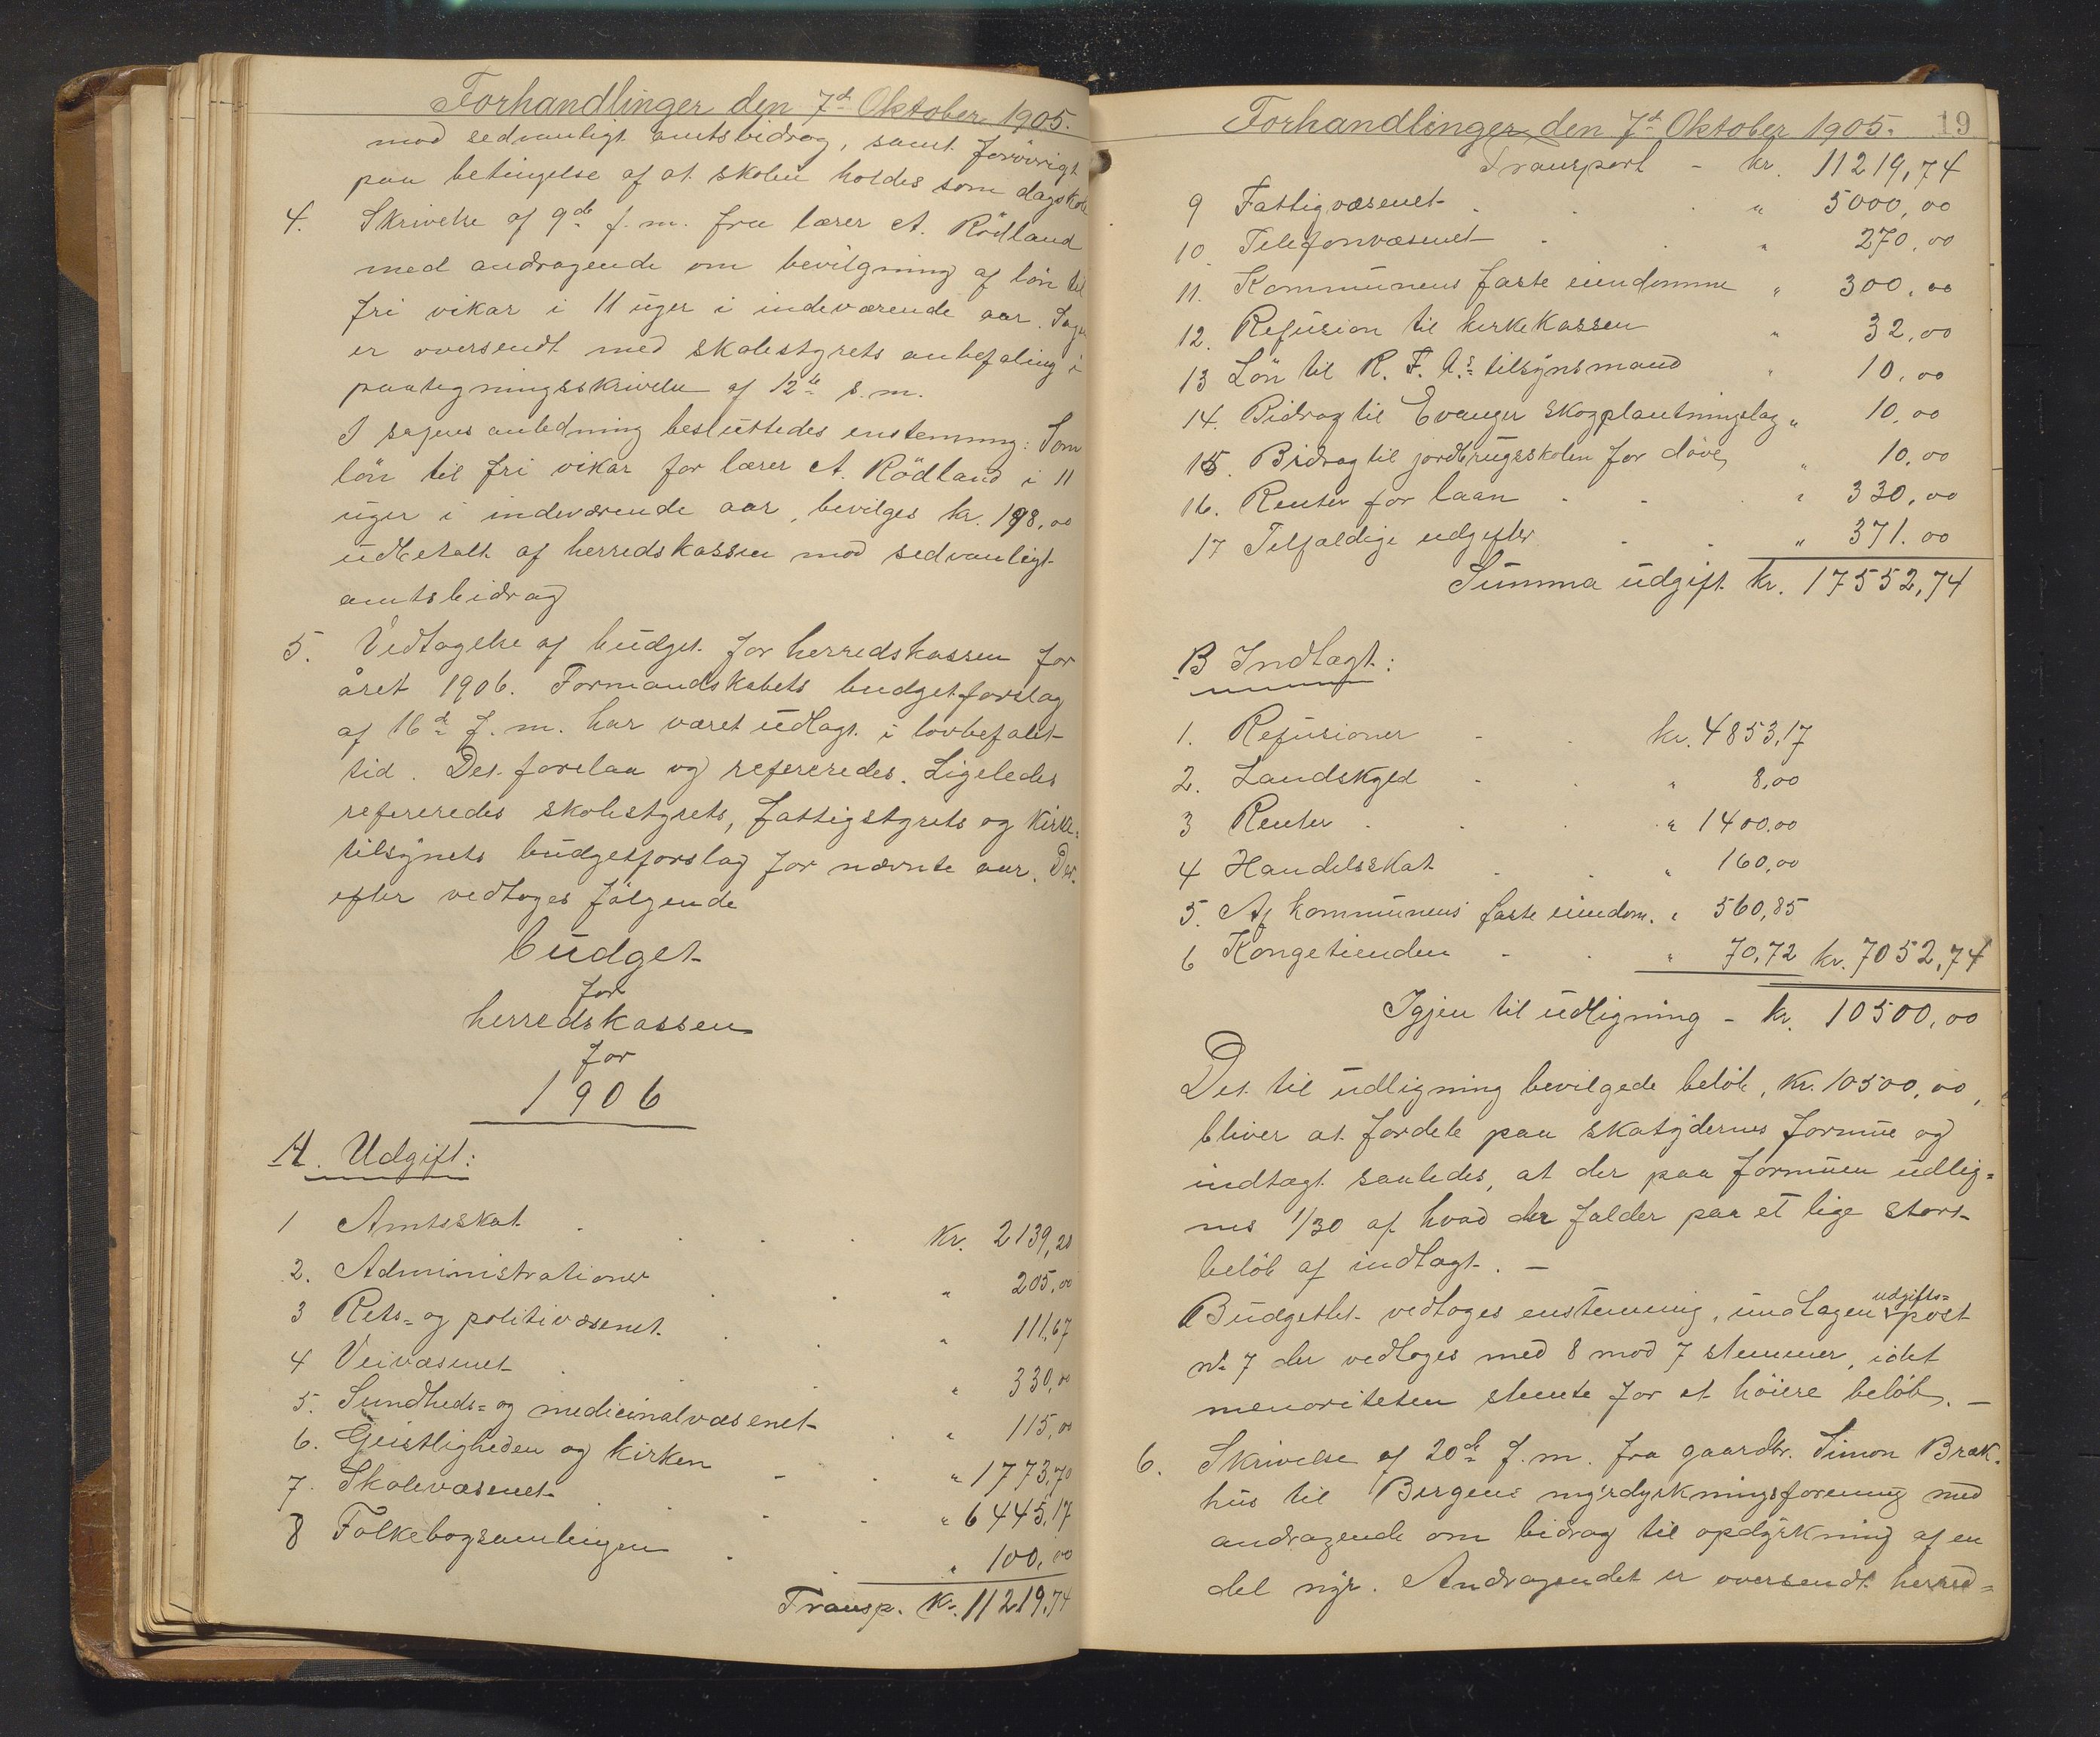 Forhandlinger den 7d Oktober 1905.
mod sedvanligt amtsbidrag, samt forövrigt
paa betingelse af at skolen holdes som dagskole
4. Skrivelse af 9de f. m. fra lærer A. Rödland
med andragende om bevilgning af lön til
fri vikar i 11 uger i indeværende aar. Sagen
er oversendt med skolestyrets anbefaling i
paategningsskrivelse af 12te s. m.
I sagens anledning besluttedes enstemmig: Som
lön til fri vikar for lærer A. Rödland i 11
uger i indeværende aar, bevilges kr. 198,00
udbetalt af herredskassen mod sedvanligt
amtsbidrag
5. Vedtagelse af budget for herredskassen for
året 1906. Formandskabets budgetforslag
af 16d f. m. har været udlagt i lovbefalet
tid. Det forelaa og refereredes. Ligeledes
refereredes skolestyrets, fattigstyrets og kirke=
tilsynets budgetforslag for nævnte aar. Der-
efter vedtoges fölgende
budget
for
herredskassen
for
1906
A. Udgift:
1 Amtsskat Kr. 2139,20
2. Administrationer " 205,00
3 Rets= og politivæsenet " 111,67
4 Veivæsenet " 330,00
5. Sundheds= og medicinalvæsenet " 115,00
6. Geistligheden og kirken " 1773,70
7. Skolevæsenet " 6445,17
8 Folkebogsamlingen " 100,00
Transp. Kr. 11219,74
Forhandlinger den 7d Oktober 1905. 19
Transport - kr. 11219,74
9 Fattigvæsenet " 5000,00
10. Telefonvæsenet " 270,00
11. Kommunens faste eiendomme " 300,00
12. Refusion til kirkekassen " 32,00
13 Lön til R. F. A.s tilsynsmand " 10,00
14. Bidrag til Evanger skogplantningslag " 10,00
15. Bidrag til jordbrugsskolen for döve " 10,00
16. Renter for laan " 330,00
17 Tilfældige udgifter " 371.00
Summa udgift kr. 17552,74
B Indtægt:
1. Refusioner kr. 4853,17
2. Landskyld " 8,00
3 Renter " 1400,00
4 Handelsskat " 160,00
5. Af kommunens faste eiendom. " 560,85
6 Kongetienden " 70,72 kr. 7052,74
Igjen til udligning - kr. 10500,00
Det til udligning bevilgede belöb, kr. 10500,00,
bliver at fordele paa skatydernes formue og
indtægt saaledes, at der paa formuen udlig=
nes 1/30 af hvad der falder paa et lige stort
belöb af indtægt. —
Budgettet vedtoges enstemmig, undtagen udgifts=post
No 7 der vedtoges med 8 mod 7 stemmer, idet
menoriteten stemte for et höiere belöb. —
6. Skrivelse af 20de f. m. fra gaardbr. Simon Bræk-
hus til Bergens myrdyrkningsforening med
andragende om bidrag til opdyrkning af en
del myr. Andragendet er oversendt herred=